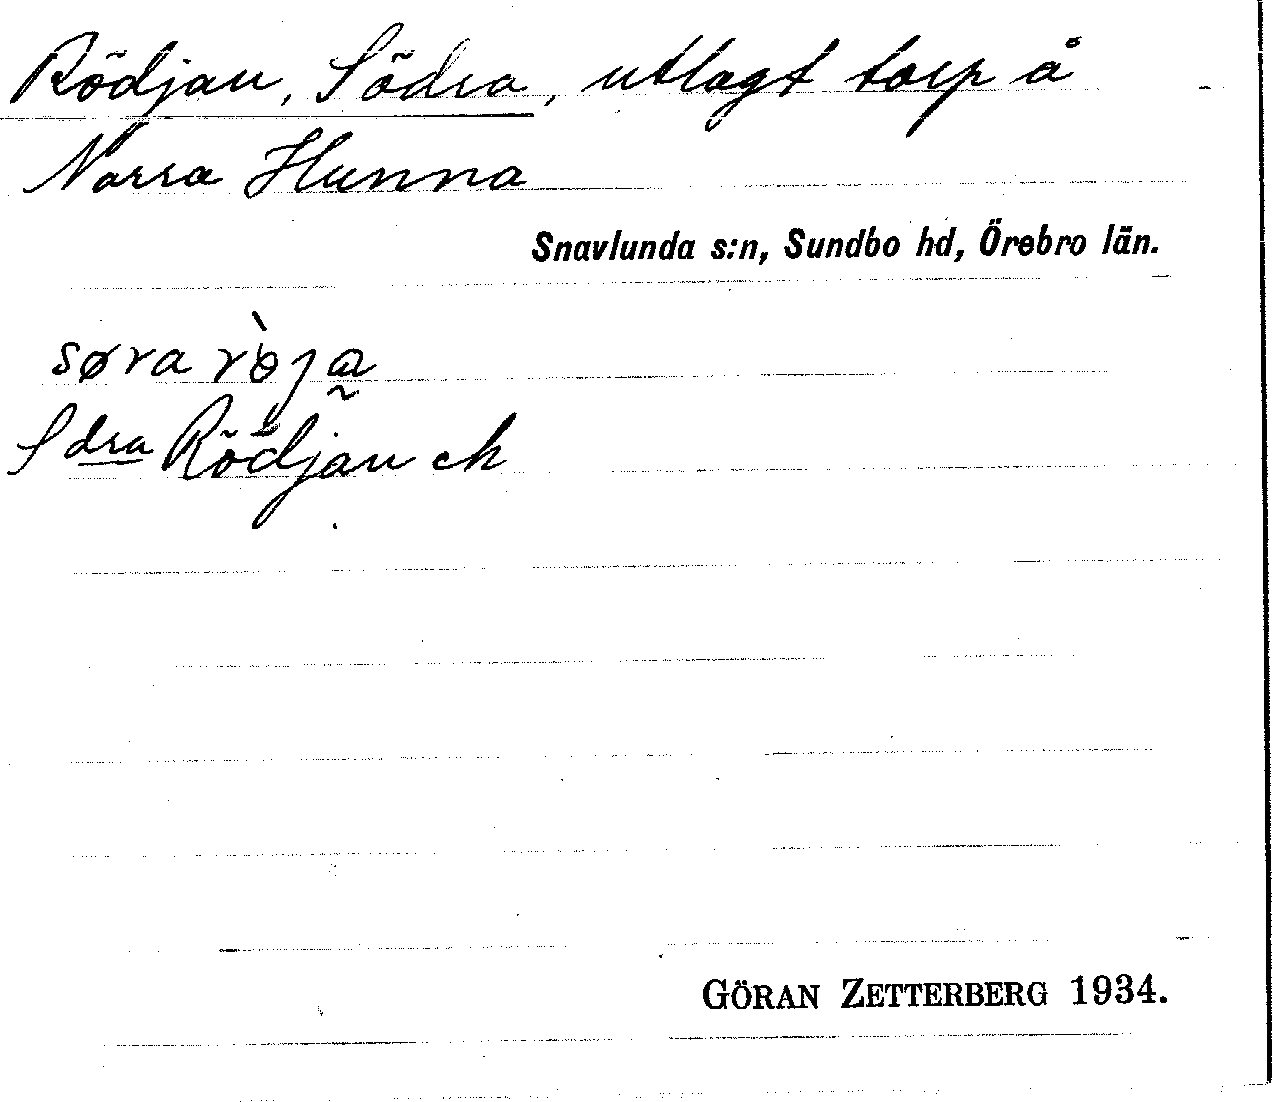 Rödjan, Södra, utlagt torp å
Norra Hunna
Snavlunda s:n, Sundbo hd, Örebro län.
søra
Sdra Rödjan ek
GÖRAN ZETTERBERG 1934.